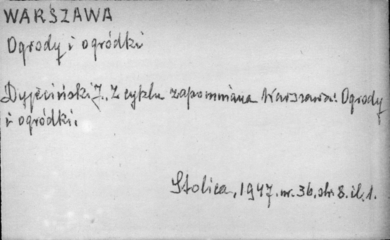 WARSZAWA
Ogrody i ogródki
J., Z cyklu zapomniana Warszawa: Ogrody
i ogródki.
Stolica, 1947. nr. 36, str. 8. il. 1.